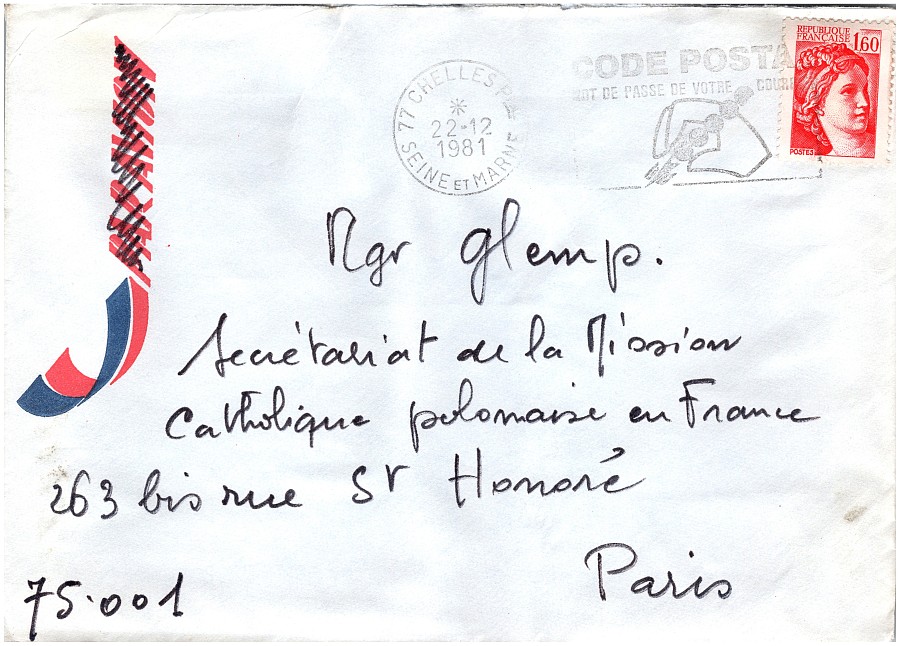 RÉPUBLIQUE
FRANÇAISE 1,60
POSTES
CODE POSTA
MOT DE PASSE DE VOTRE COURR
77 CHELLES P.
22-12
1981
SEINE ET MARNE
Mgr Glemp.
Secrétariat de la Mission
Catholique polonaise en France
263 bis rue St Honoré
Paris
75.001